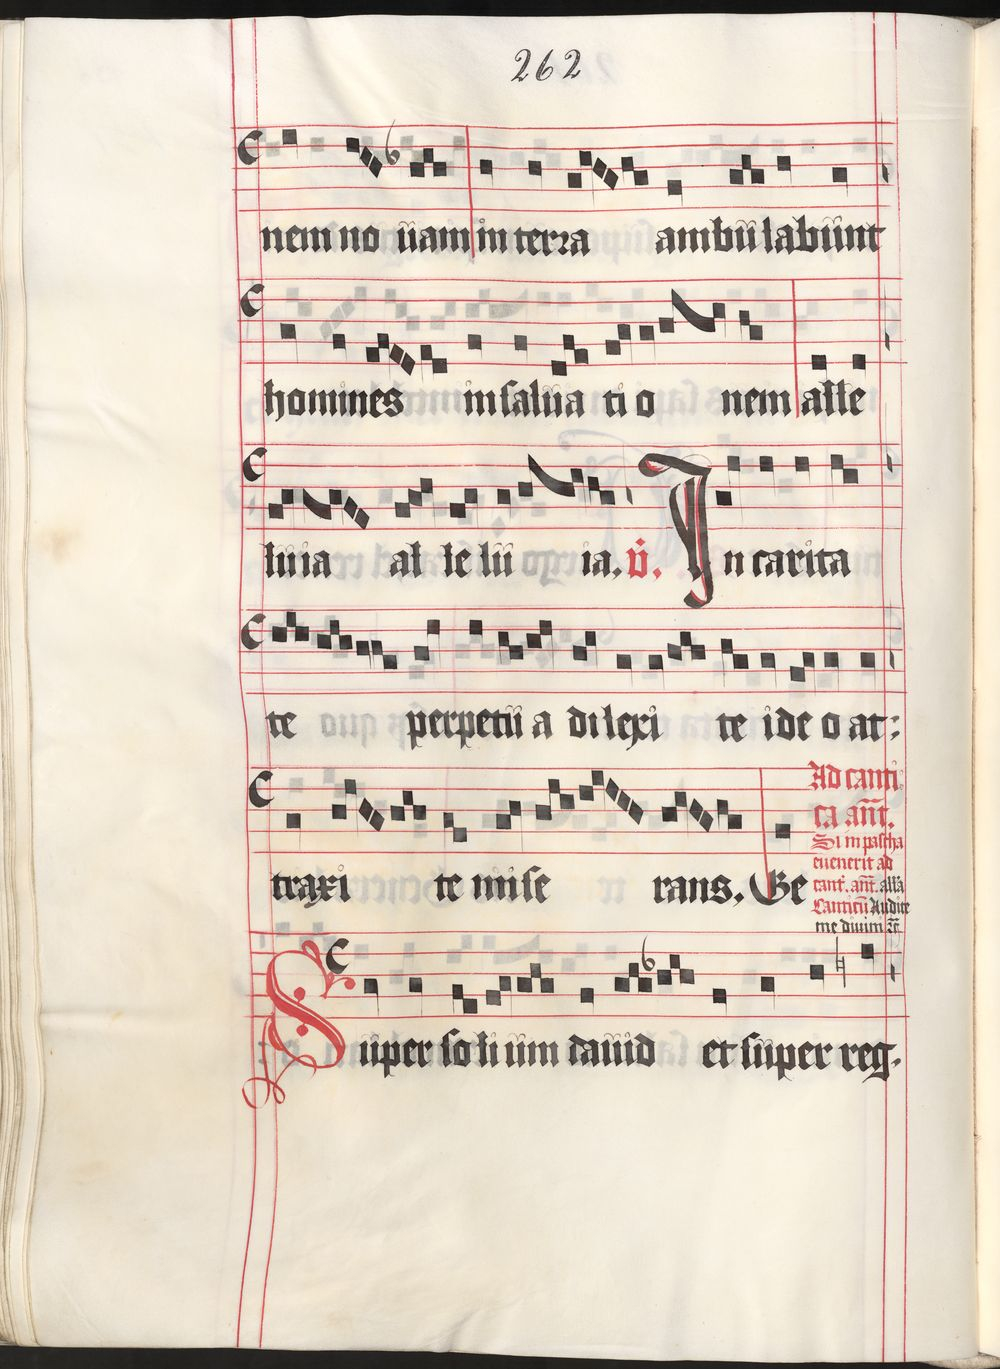 262
nem no uam in terra ambulabunt
homines in salua ti o nem alle
luia al le lu ia. v̇. In carita
te perpetu a dilexi te ide o at:
traxi te mise rans. Ge
Ad canti
ca an̄t.
Si in pascha
euenerit ad
cant. an̄t. alla
Canticū Audite
me diuini
Super soli um dauid et super reg.